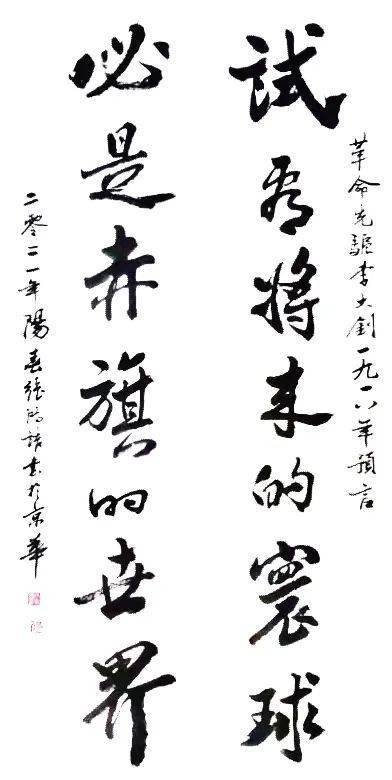 革命先驅李大釗一九一八年預言
試看將来的寰球
必是赤旗的世界
二零二一年陽春張書於京華